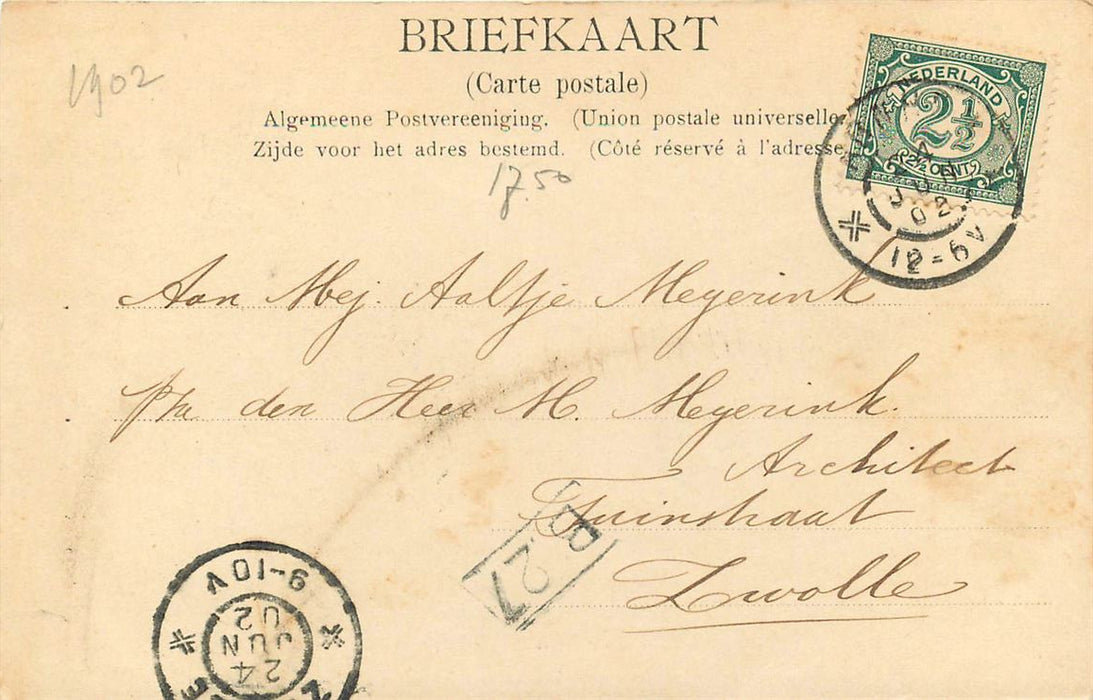 BRIEFKAART
(Carte postale)
Algemeene Postvereeniging. (Union postale universelle
Zijde voor het adres bestemd. (Côté réservé à l'adresse
1902
17.50
NEDERLAND
2½
2½ CENT
JUN
02
12-6V
Aan Mej. Aaltje Meyerink
p/a den Heer M. Meyerink.
Architect
Tuinstraat
Zwolle
B.27
9-10V
24
JUN
02